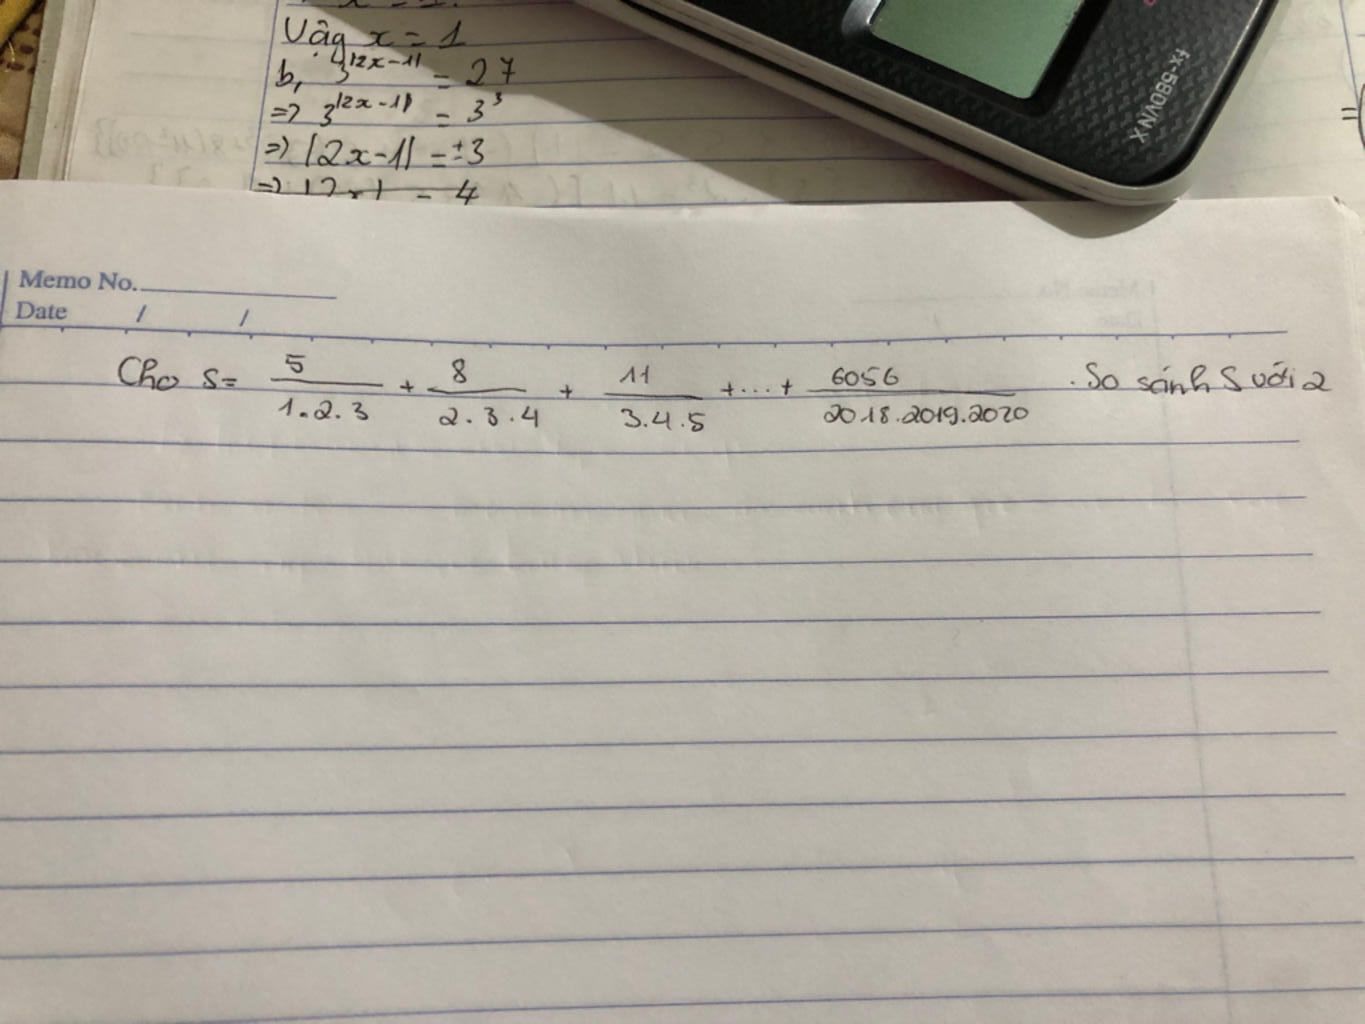 Vậy x = 1
b, 3^|2x-1| = 27
=> 3^|2x-1| = 3³
=> |2x-1| = ±3
=> |2x| = 4
fx-580VNX
Memo No.
Date / /
Cho S = 5/1.2.3 + 8/2.3.4 + 11/3.4.5 +...+ 6056/2018.2019.2020 . So sánh S với 2